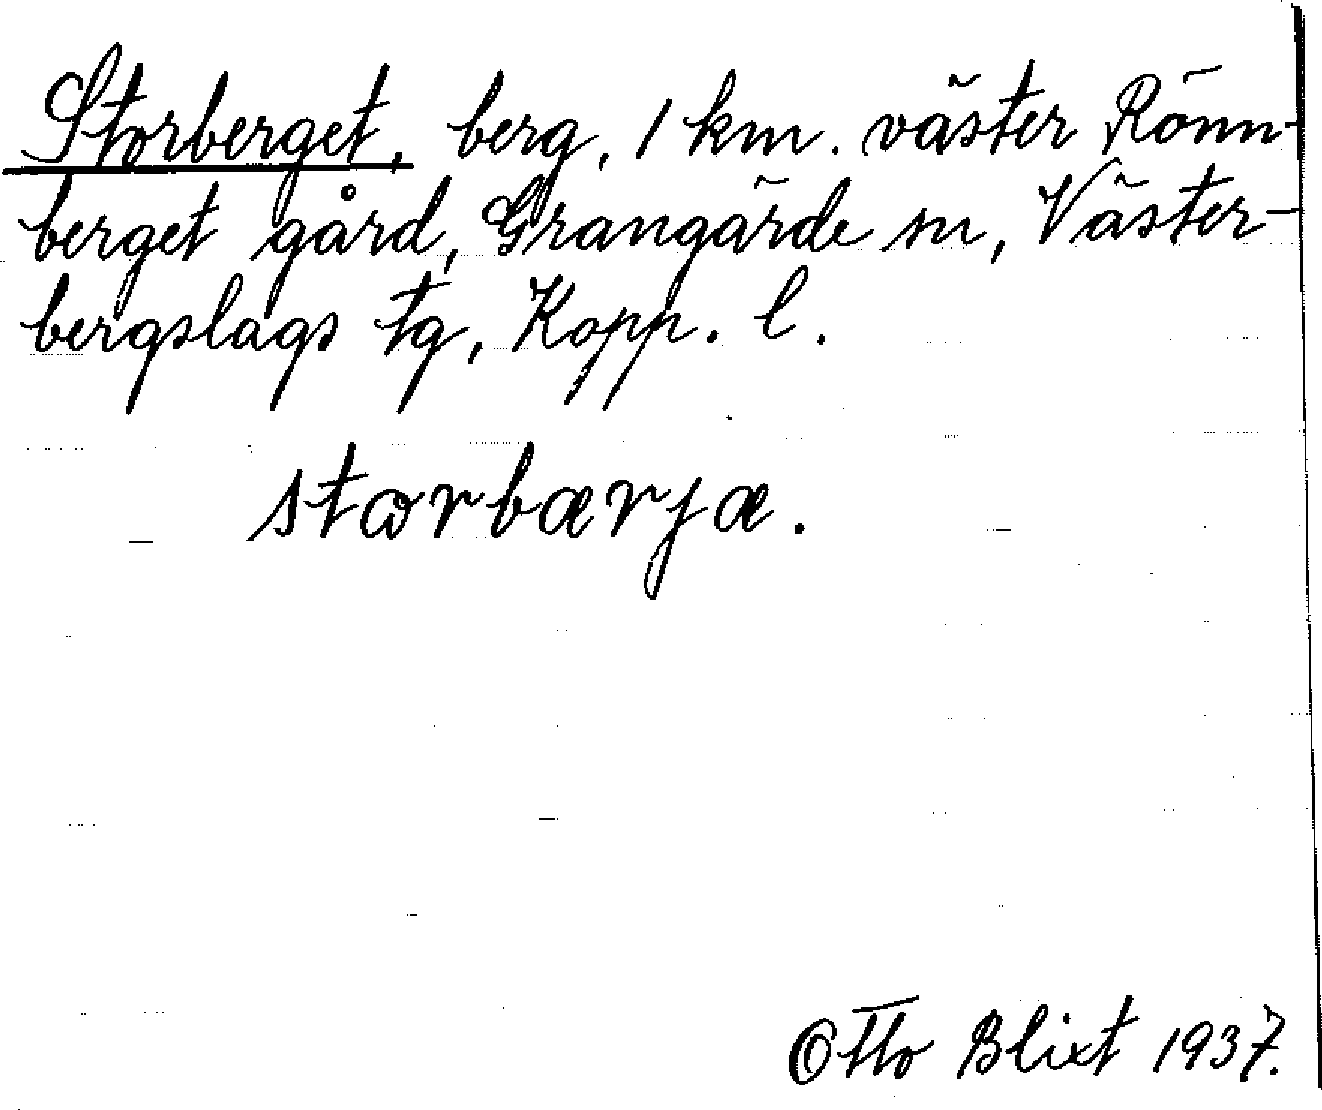 Storberget, berg, 1 km. väster Rönn-
berget gård, Grangärde sn, Väster-
bergslags tg, Kopp. l.
stωrbærjæ.
Otto Blixt 1937.